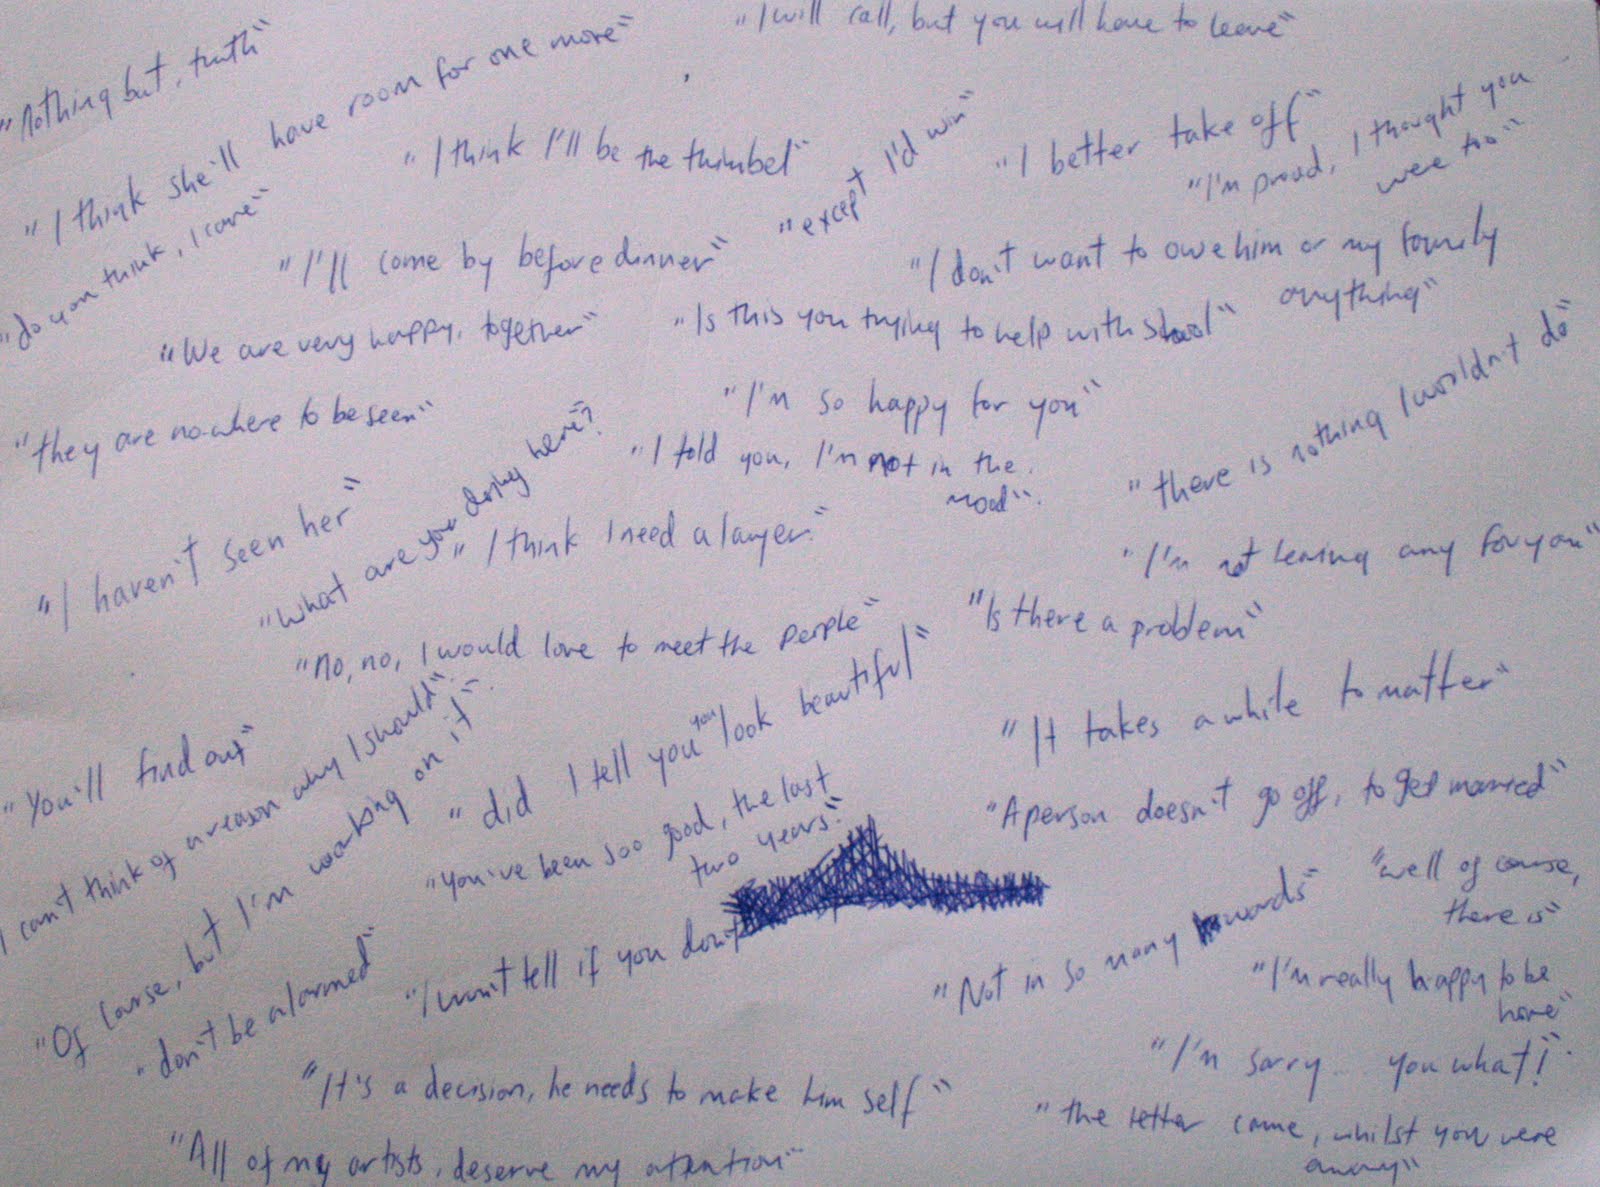 "Nothing but, truth"
"I will call, but you will have to leave"
"I think she'll have room for one more"
"I think I'll be the thimbel"
"except I'd win"
"I better take off"
"I'm proud, I thought you
were too"
"do you think, I care"
"I'll come by before dinner"
"I don't want to owe him or my family
anything"
"We are very happy, together"
"Is this you trying to help with school"
"they are nowhere to be seen"
"I'm so happy for you"
"there is nothing I wouldn't do"
"I told you, I'm not in the
mood".
"I haven't seen her"
"What are you doing here"?
"I think I need a layer."
"I'm not leaving any for you"
"No, no, I would love to meet the people"
"Is there a problem"
"You'll find out"
I can't think of a reason why I should"
"did I tell you you look beautiful"
"It takes a while to matter"
"Of course, but I'm working on it"
"You've been soo good, the last
two years."
"A person doesn't go off, to get married"
"don't be alarmed"
"I won't tell if you don't
"Not in so many words"
"well of course,
there is"
"I'm really happy to be
home"
"It's a decision, he needs to make him self"
"I'm sorry... you what!"
"All of my artists, deserve my attention"
"the letter came, whilst you were
away"